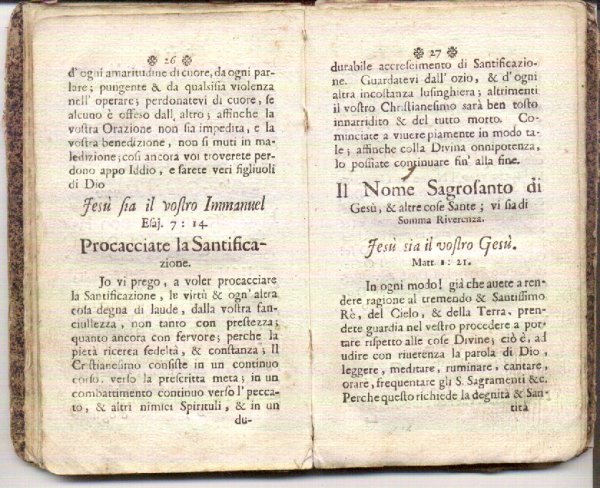 26
d' ogni amaritudine di cuore, da ogni par-
lare; pungente & da qualsisia violenza
nell' operare; perdonatevi di cuore, se
alcuno è offeso dall, altro; affinche la
vostra Orazione non sia impedita, e la
vostra benedizione, non si muti in ma-
ledizione; così ancora voi troverete per-
dono appo Iddio, e sarete veri figliuoli
di Dio
Jesù sia il vostro Immanuel
Esaj. 7 : 14.
Procacciate la Santifica-
zione.
Jo vi prego, a voler procacciare
la Santificazione, le virtù & ogn' altra
cosa degna di laude, dalla vostra fan-
ciullezza, non tanto con prestezza;
quanto ancora con fervore; perche la
pietà ricerea fedeltà, & constanza; Il
Cristianesimo consiste in un continuo
corso. verso la prescritta meta; in un
combattimento continuo verso l' pecca-
to, & altri nimici Spirituli, & in un
du-
27
durabile accrescimento di Santificazio-
ne. Guardatevi dall' ozio, & d' ogni
altra incostanza lusinghiera; altrimenti
il vostro Christianesimo sarà ben tosto
innarridito & del tutto morto. Co-
minciate a viuere piamente in modo ta-
le; affinche colla Divina onnipotenza,
lo possiate continuare fin' alla fine.
Il Nome Sagrosanto di
Gesù, & altre cose Sante; vi sia di
Somma Riverenza.
Jesù sia il vostro Gesù.
Matt 1 : 21.
In ogni modo! già che avete a ren-
dere ragione al tremendo & Santissimo
Rè, del Cielo, & della Terra, pren-
dete guardia nel vestro procedere a por-
tare rispetto alle cose Divine; ciò è, ad
udire con riuerenza la parola di Dio,
leggere, meditare, ruminare, cantare,
orare, frequentare gli S. Sagramenti &c.
Perche questo richiede la degnità & San-
tità